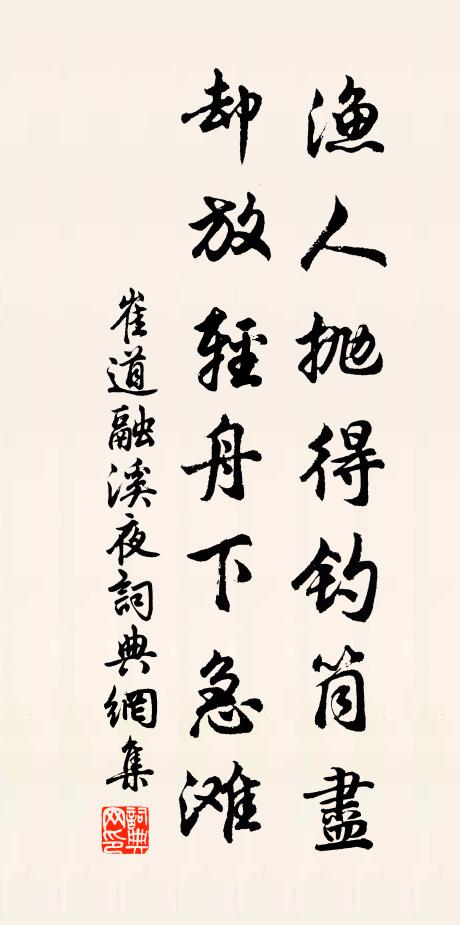 渔人抛得钓筒盡
却放轻舟下急滩
崔道融溪夜詞典網集
詞典网印